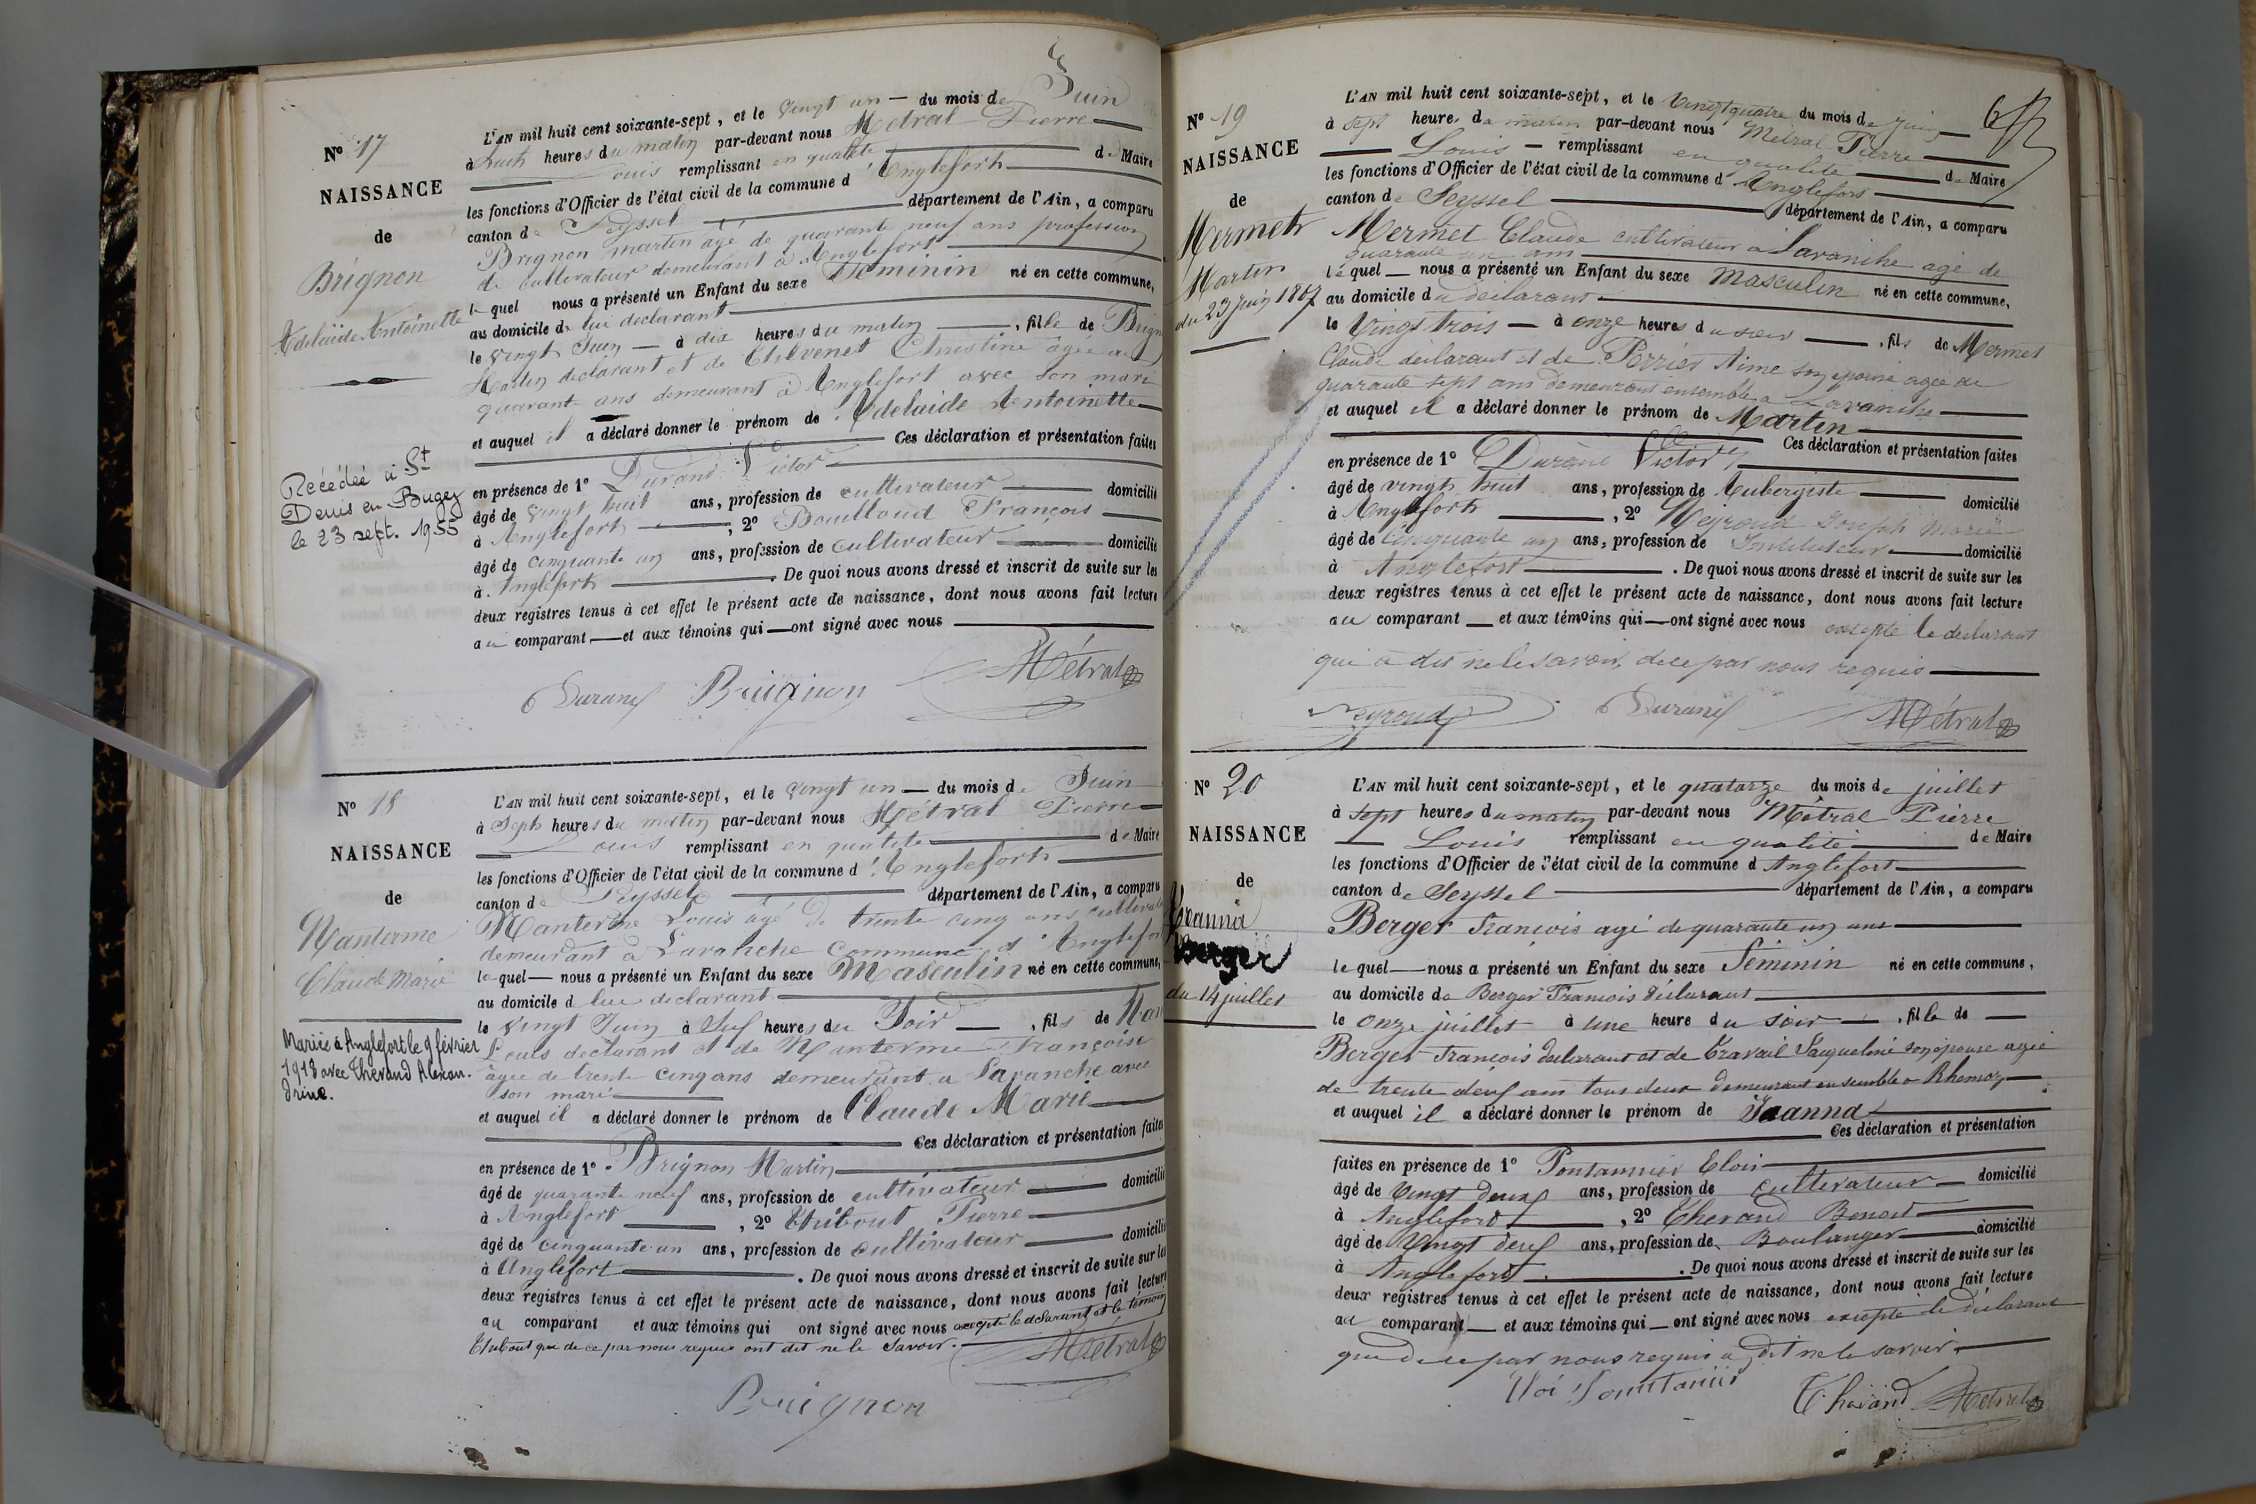 N° 17
NAISSANCE
de
Brignon
Adelaïde Antoinette
Décédée à St
Denis en Bugey
le 23 sept. 1955
L'AN mil huit cent soixante-sept, et le vingt un — du mois de Juin
à huit heures du matin par-devant nous Métral Pierre
Louis remplissant en qualité de Maire
les fonctions d'Officier de l'état civil de la commune d'Anglefort
canton de Seyssel département de l'Ain, a comparu
Brignon martin âgé de quarante neuf ans profession
de cultivateur demeurant à Anglefort
le quel nous a présenté un Enfant du sexe Féminin né en cette commune,
au domicile de lui déclarant
le vingt Juin — à dix heures du matin , fille de Brign
Martin déclarant et de Thévenet Christine âgée de
quarante ans demeurant à Anglefort avec son mari
et auquel il a déclaré donner le prénom de Adelaide Antoinette
Ces déclaration et présentation faites
en présence de 1° Durand Victor
âgé de vingt huit ans, profession de cultivateur domicilié
à Anglefort , 2° Bouilloud François
âgé de cinquante un ans, profession de cultivateur domicilié
à Anglefort . De quoi nous avons dressé et inscrit de suite sur les
deux registres tenus à cet effet le présent acte de naissance, dont nous avons fait lecture
au comparant — et aux témoins qui — ont signé avec nous
Durand Brignon Métral
N° 18
NAISSANCE
de
Manterme
Claude Marie
Marié à Anglefort le 9 février
1918 avec Thévand Alexan-
drine.
L'AN mil huit cent soixante-sept, et le vingt un — du mois de Juin
à Sept heures du matin par-devant nous Métral Pierre
Louis remplissant en qualité de Maire
les fonctions d'Officier de l'état civil de la commune d'Anglefort
canton de Seyssel département de l'Ain, a comparu
Manterme Louis âgé de trente cinq ans cultivate
demeurant à Lavanche commune d'Anglefort
le quel — nous a présenté un Enfant du sexe Masculin né en cette commune,
au domicile de lui déclarant
le vingt Juin à neuf heures du Soir — , fils de Man
Louis déclarant et de Manterme Françoise
âgée de trente cinq ans demeurant a Lavanche avec
son mari
et auquel il a déclaré donner le prénom de Claude Marie
Ces déclaration et présentation faites
en présence de 1° Brignon Martin
âgé de quarante neuf ans, profession de cultivateur domicilié
à Anglefort , 2° Thibout Pierre
âgé de cinquante un ans, profession de cultivateur domicilié
à Anglefort . De quoi nous avons dressé et inscrit de suite sur les
deux registres tenus à cet effet le présent acte de naissance, dont nous avons fait lecture
au comparant et aux témoins qui ont signé avec nous excepté le déclarant et le témoin
Thibout que de ce par nous requis ont dit ne le Savoir. Métral
Brignon
N° 19
NAISSANCE
de
Mermet
Martin
du 23 juin 1867
L'AN mil huit cent soixante-sept, et le vingt quatre du mois de juin
à sept heures du matin par-devant nous Métral Pierre
Louis — remplissant en qualité de Maire
les fonctions d'Officier de l'état civil de la commune d'Anglefort
canton de Seyssel département de l'Ain, a comparu
Mermet Claude cultivateur à Lavanche agé de
quarante un ans
le quel — nous a présenté un Enfant du sexe masculin né en cette commune,
au domicile du déclarant
le Vingt trois — à onze heures du soir , fils de Mermet
Claude déclarant et de Perrier Aimé son épouse agée de
quarante sept ans demeurant ensemble a Lavanche
et auquel il a déclaré donner le prénom de Martin
Ces déclaration et présentation faites
en présence de 1° Durand Victor
âgé de vingt huit ans, profession de Aubergiste domicilié
à Anglefort , 2° Neyroud Joseph Marie
âgé de Cinquante un ans, profession de Instituteur domicilié
à Anglefort . De quoi nous avons dressé et inscrit de suite sur les
deux registres tenus à cet effet le présent acte de naissance, dont nous avons fait lecture
au comparant — et aux témoins qui — ont signé avec nous excepté le déclarant
qui a dit ne le savoir, de ce par nous requis
Neyroud Durand Métral
N° 20
NAISSANCE
de
Jeanna
Berger
du 14 juillet
L'AN mil huit cent soixante-sept, et le quatorze du mois de juillet
à sept heures du matin par-devant nous Métral Pierre
Louis remplissant en qualité de Maire
les fonctions d'Officier de l'état civil de la commune d Anglefort
canton de Seyssel département de l'Ain, a comparu
Berger François agé de quarante un ans
le quel — nous a présenté un Enfant du sexe Féminin né en cette commune,
au domicile de Berger François déclarant
le Onze juillet à Une heure du soir — , fille de —
Berger François déclarant et de Travail Jacqueline son épouse agée
de trente deux ans tous deux demeurant ensemble a Rhemoz
et auquel il a déclaré donner le prénom de Jeanna
Ces déclaration et présentation
faites en présence de 1° Pontannier Eloi
âgé de Vingt deux ans, profession de cultivateur domicilié
à Anglefort , 2° Thevand Benoit
âgé de Vingt deux ans, profession de Boulanger domicilié
à Anglefort . De quoi nous avons dressé et inscrit de suite sur les
deux registres tenus à cet effet le présent acte de naissance, dont nous avons fait lecture
au comparant — et aux témoins qui — ont signé avec nous excepté le déclarant
que de ce par nous requis a dit ne le savoir
Thévand Métral